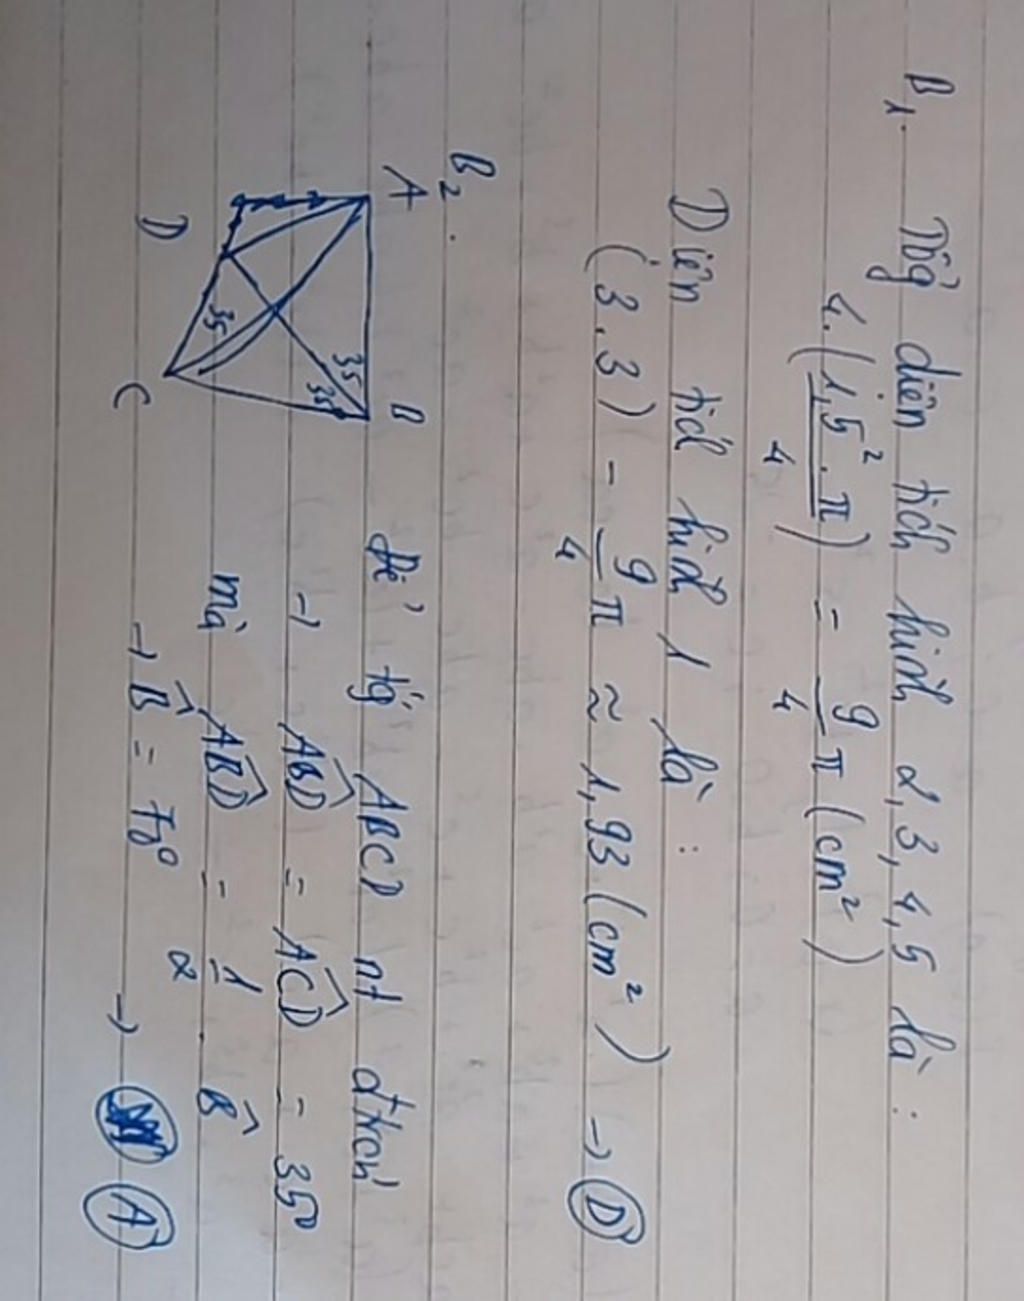 B1. Tổng diện tích hình 2, 3, 4, 5 là :
4.(1,5².π/4) = 9/4 π (cm²)
Diện tích hình 1 là :
(3.3) - 9/4 π ≈ 1,93 (cm²) → D
B2.
A B
35
35
35
D C
Để tg ABCD nt đtròn
→ ABD = ACD = 35°
mà ABD = 1/2 . B
→ B = 70° → A